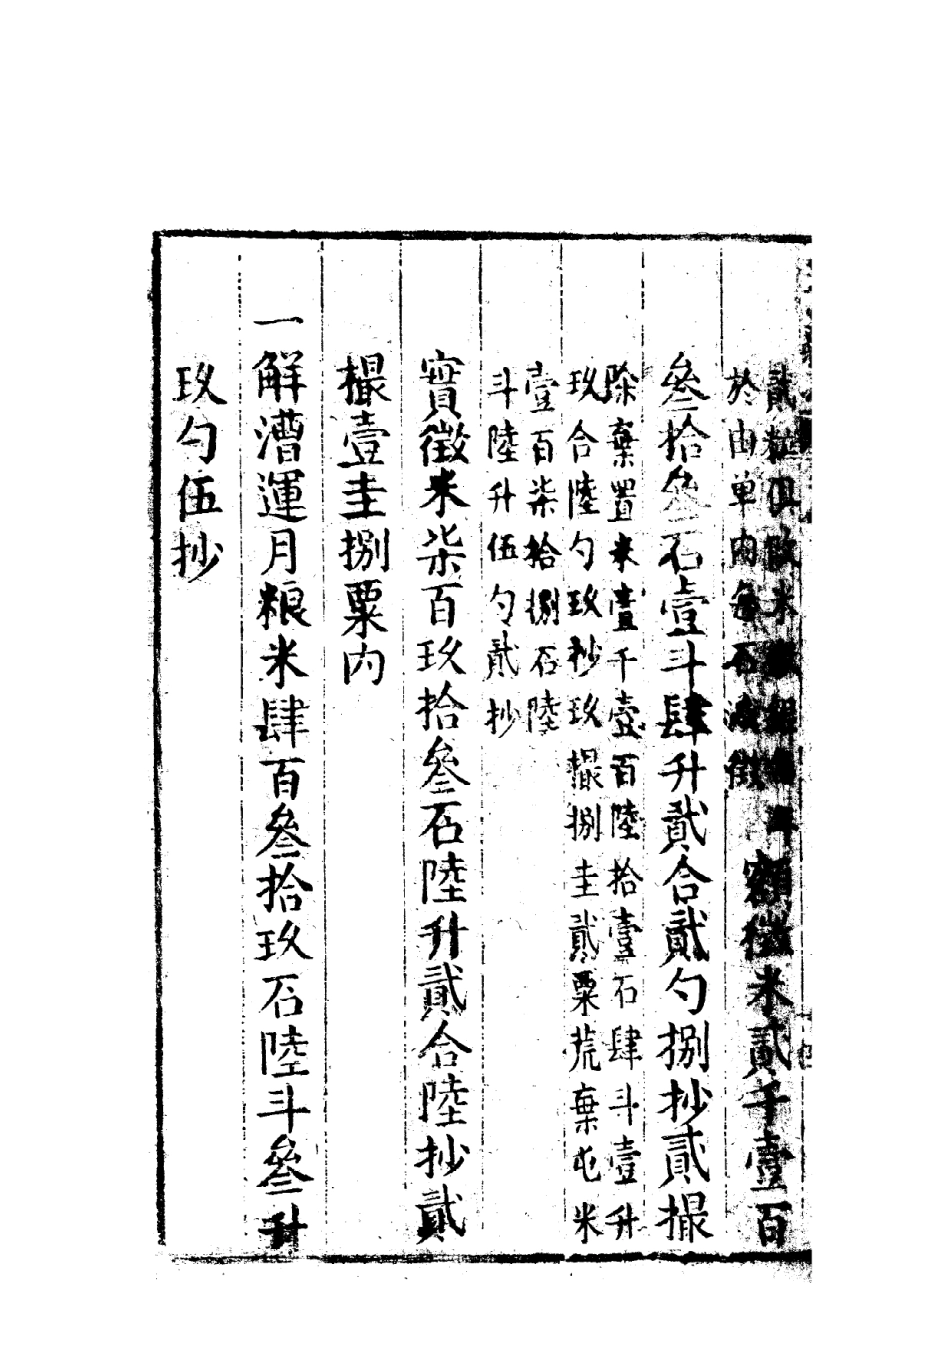 貳粒俱改米
於由单内每石減徵
額徵米貳千壹百
叄拾叄石壹斗肆升貳合貳勺捌抄貳撮
除棄置米壹千壹百陸拾壹石肆斗壹升
玖合陸勺玖抄玖撮捌圭貳粟荒棄屯米
壹百柒拾捌石陸
斗陸升伍勺貳抄
實徵米柒百玖拾叄石陸升貳合陸抄貳
撮壹圭捌粟内
一解漕運月粮米肆百叄拾玖石陸斗叄升
玖勺伍抄